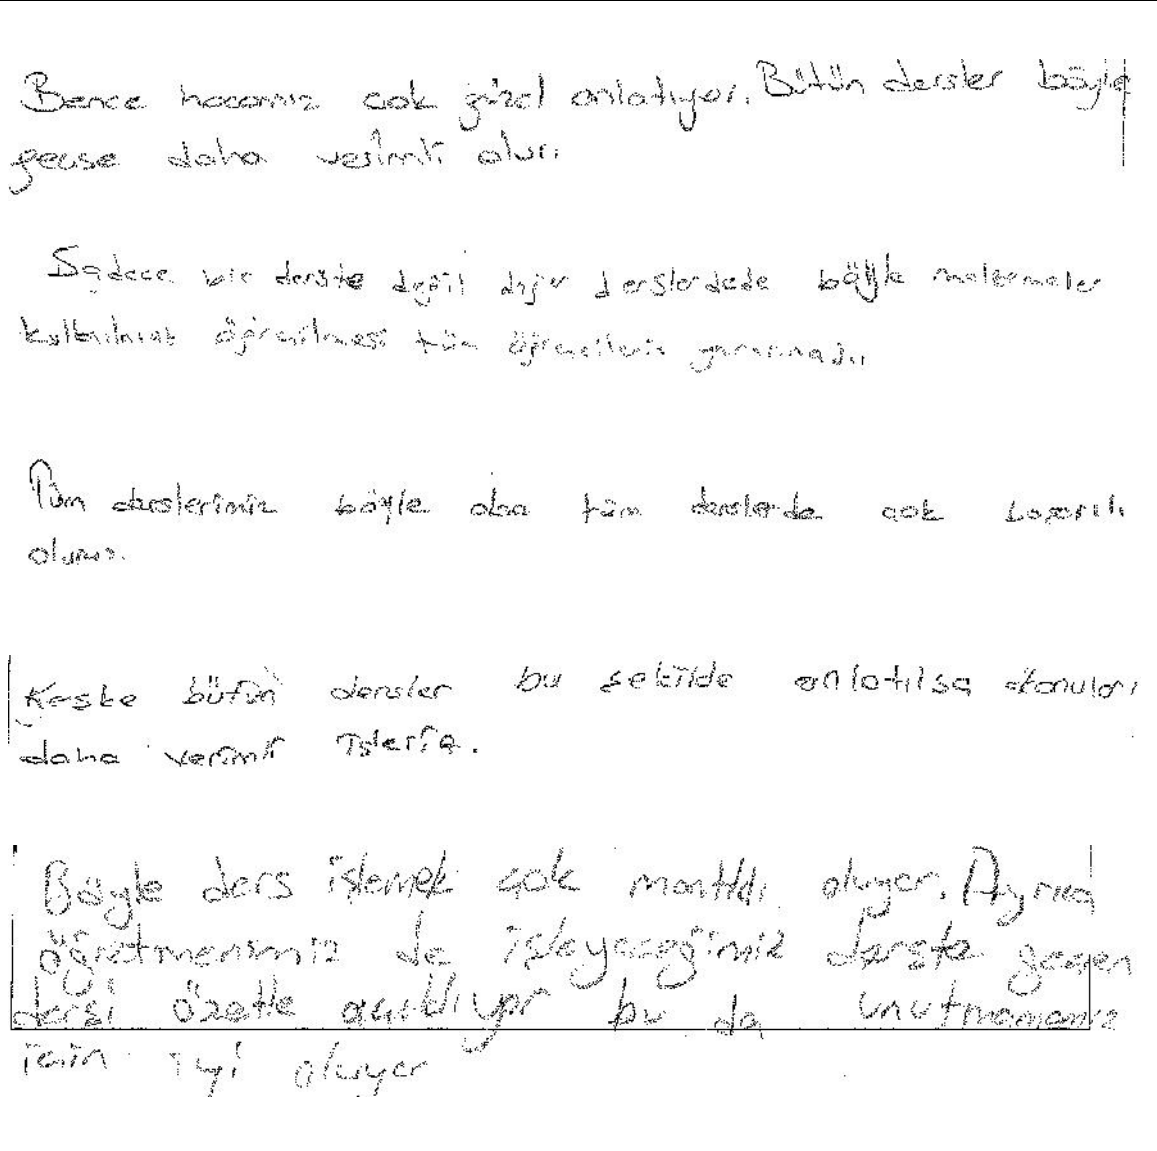 Bence hocamız çok güzel anlatıyor. Bütün dersler böyle
geçse daha verimli olur.
Sadece bir derste değil diğer derslerdede böyle malzemeler
kullanılarak öğrenilmesi tüm öğrencilerin yararınadır.
Tüm derslerimiz böyle olsa tüm derslerde çok başarılı
oluruz.
Keşke bütün dersler bu şekilde anlatılsa konuları
daha verimli işleriz.
Böyle ders işlemek çok mantıklı oluyor. Ayrıca
öğretmenimiz de işleyeceğimiz derste geçen
dersi özetle açıklıyor bu da unutmamamız
için iyi oluyor